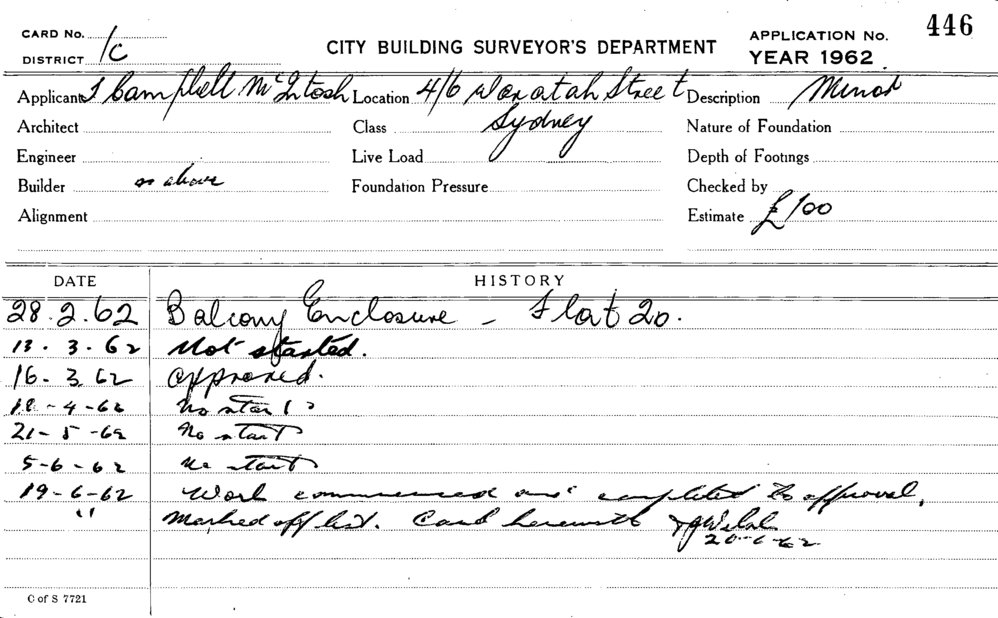 CARD No. 446
DISTRICT 1c CITY BUILDING SURVEYOR'S DEPARTMENT APPLICATION No. YEAR 1962
Applicant J Campbell McIntosh Location 4/6 Waratah Street Description Minor
Architect Class Sydney Nature of Foundation
Engineer Live Load Depth of Footings
Builder as above Foundation Pressure Checked by
Alignment Estimate £100
DATE HISTORY
28.2.62 Balcony Enclosure - Flat 20.
13.3.62 Not started.
16.3.62 approved.
18-4-62 No start
21-5-62 No start
5-6-62 No start
19-6-62 Work commenced and completed to approval,
" Marked off list. Card herewith
20-6-62
C of S 7721